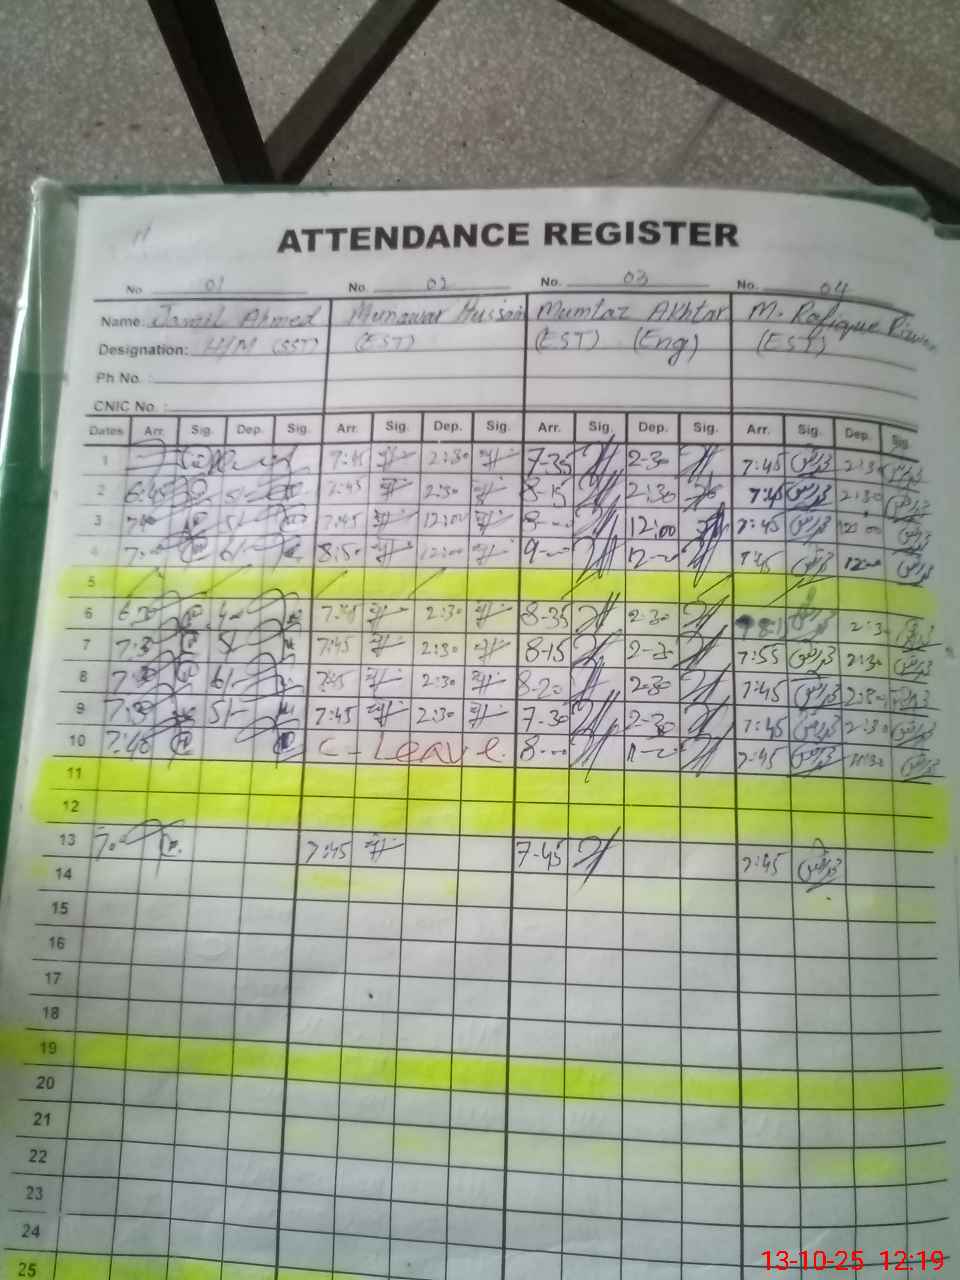 ATTENDANCE REGISTER
No. 01 No. 02 No. 03 No. 04
Name: Jamil Ahmed Munawar Hussain Mumtaz Akhtar M. Rafique
Designation: H/M (SST) (EST) (EST) (Eng) (EST)
Ph No. :
CNIC No. :
Dates Arr. Sig. Dep. Sig. Arr. Sig. Dep. Sig. Arr. Sig. Dep. Sig. Arr. Sig. Dep. Sig.
1 7:45 2:30 7-35 2-30 7:45 2:30
2 6:45 5/- 7:45 2:30 8-15 2:30 7:45 2:30
3 5/- 7:45 12:00 8- 12:00 7:45 12:00
4 6/- 8:50 12:00 9- 12- 7:45
5
6 7:45 2:30 8-35 2-30 2:30
7 5/- 7:45 2:30 8-15 7:55 2:30
8 6/- 7:45 2:30 8-20 2-30 7:45 2:30
9 5/- 7:45 2:30 7-30 2-30 7:45 2:30
10 7:40 C-Leave. 8- 7:45
11
12
13 7:45 7-45 7:45
14
15
16
17
18
19
20
21
22
23
24
25
13-10-25 12:19